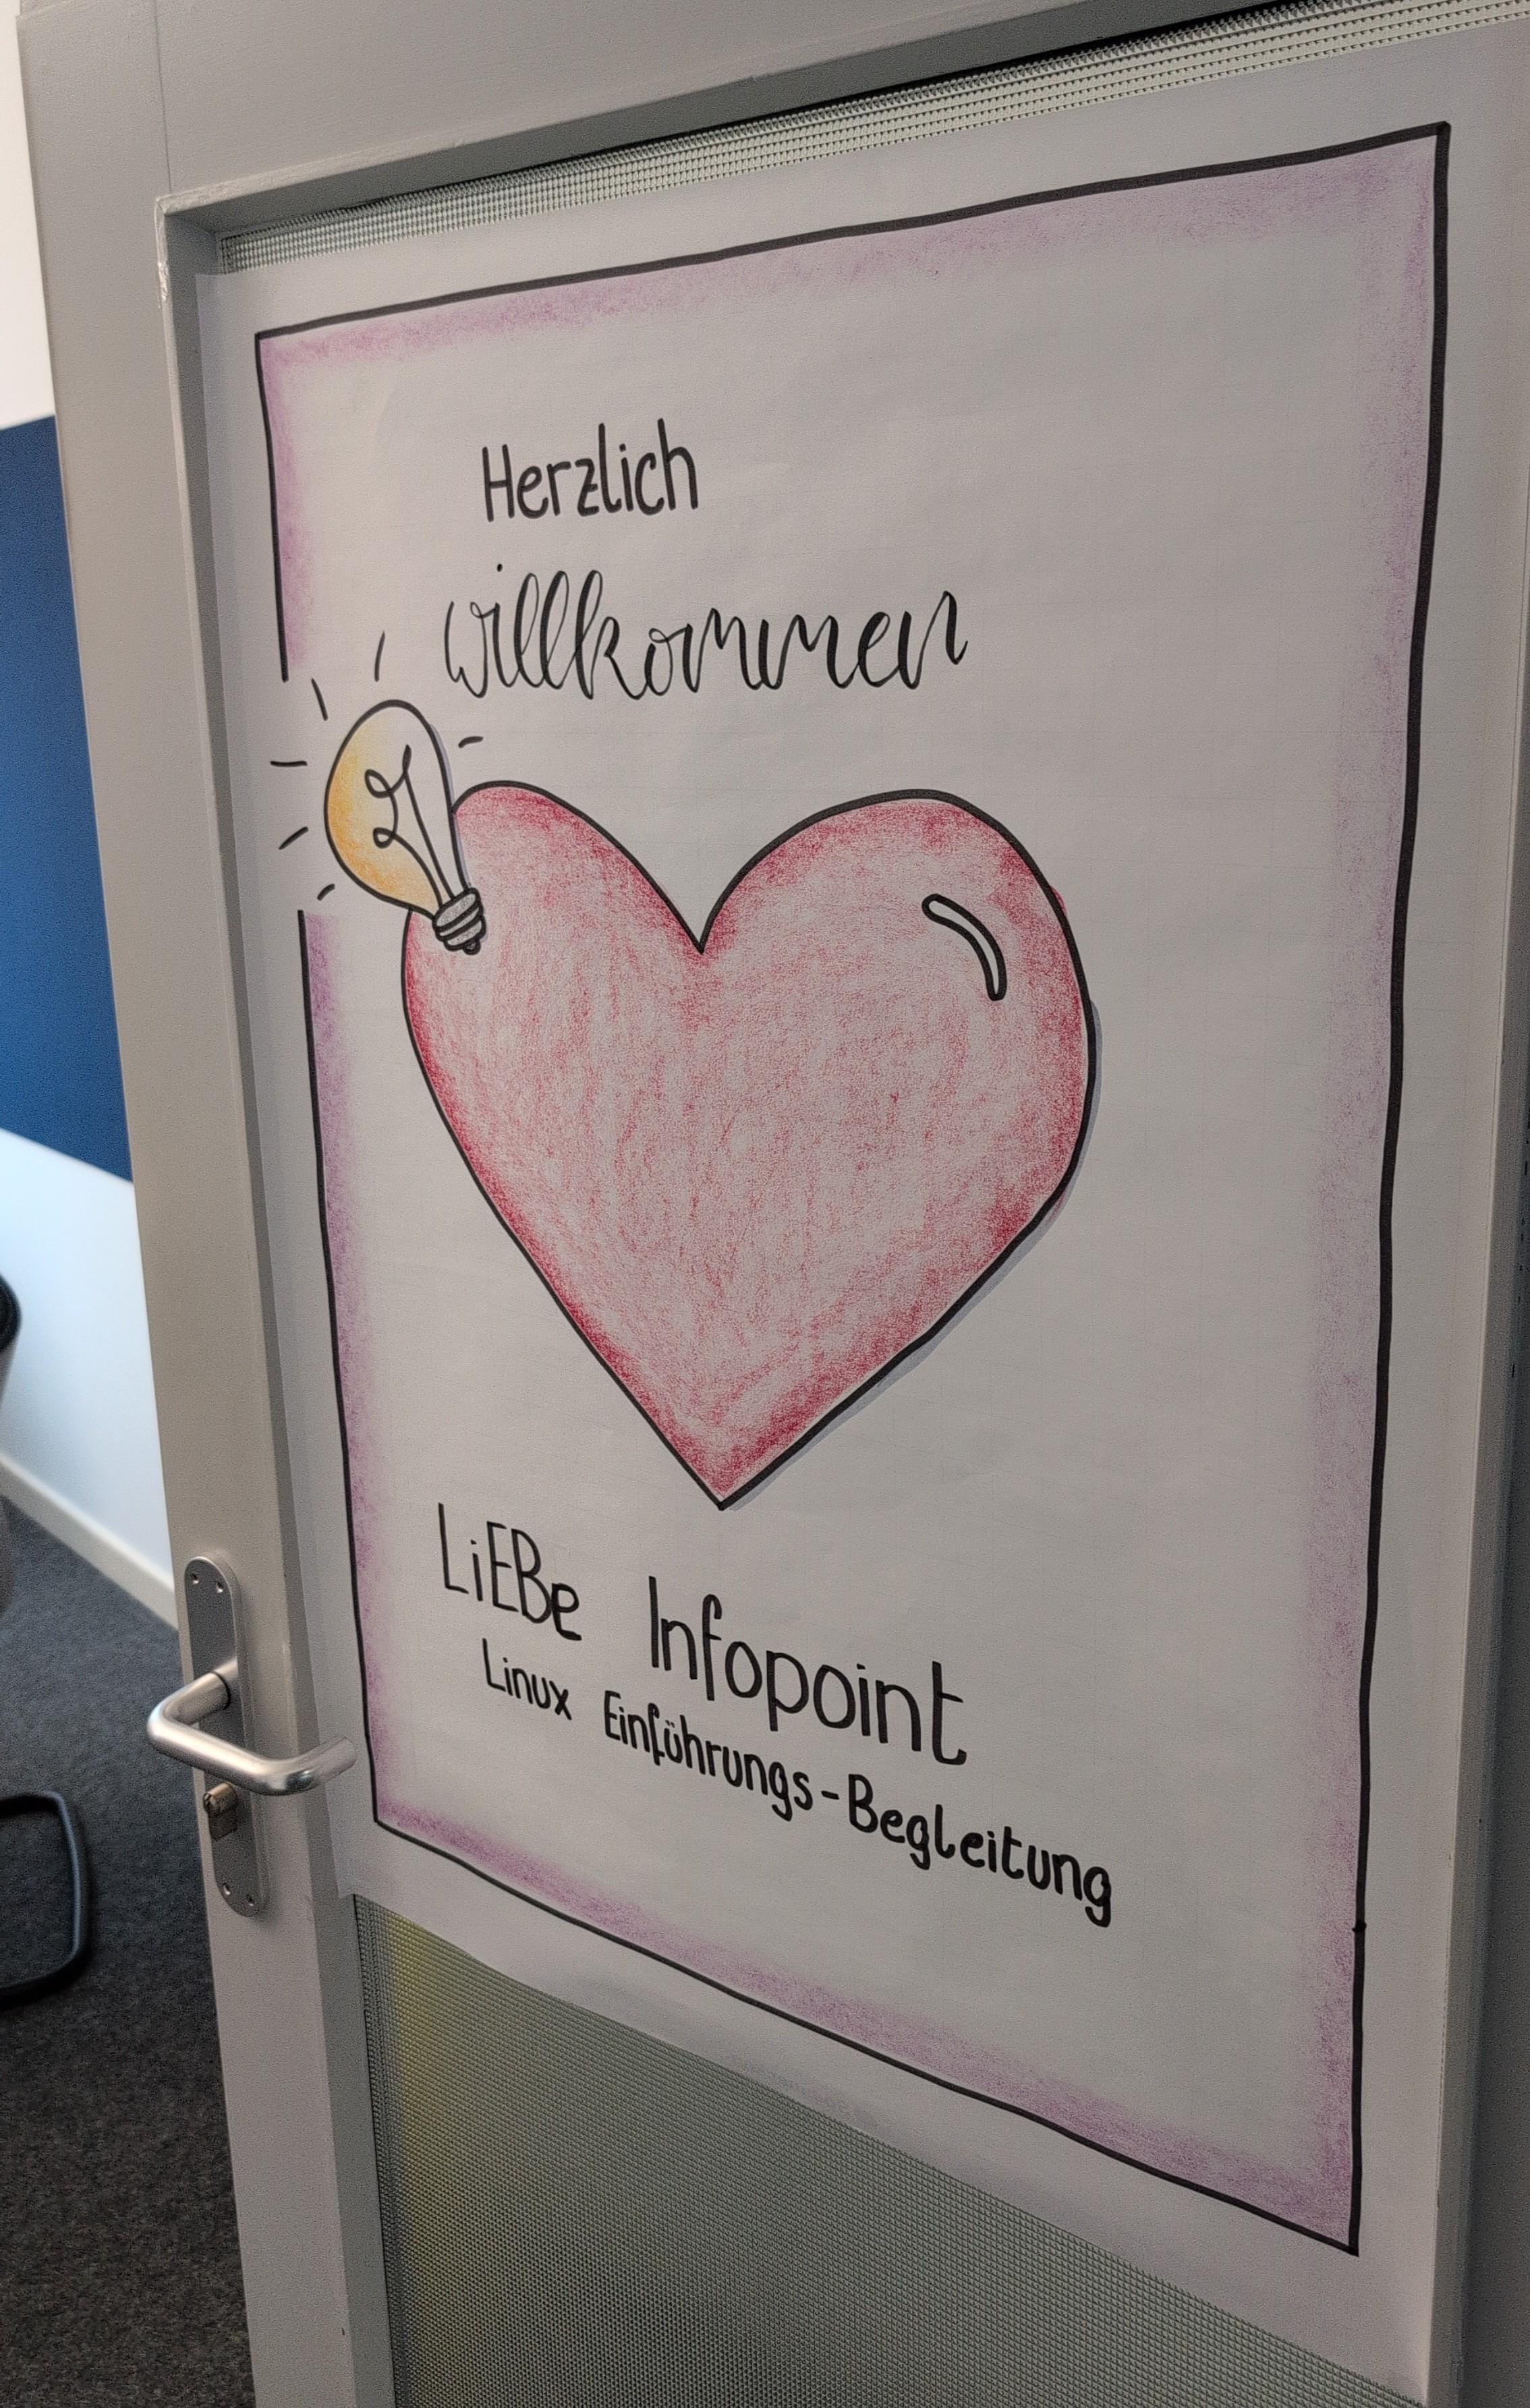 Herzlich
willkommen
LiEBe Infopoint
Linux Einführungs-Begleitung